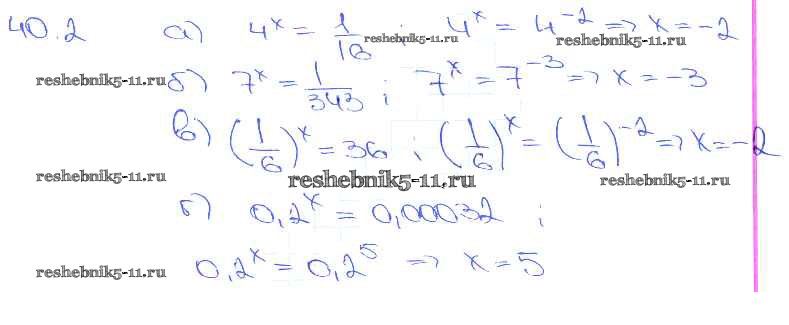 40.2 а) 4^x = 1/16 ; 4^x = 4^-2 => x = -2
reshebnik5-11.ru reshebnik5-11.ru
reshebnik5-11.ru б) 7^x = 1/343 ; 7^x = 7^-3 => x = -3
в) (1/6)^x = 36 ; (1/6)^x = (1/6)^-2 => x = -2
reshebnik5-11.ru reshebnik5-11.ru reshebnik5-11.ru
г) 0,2^x = 0,00032 ;
reshebnik5-11.ru 0,2^x = 0,2^5 => x = 5